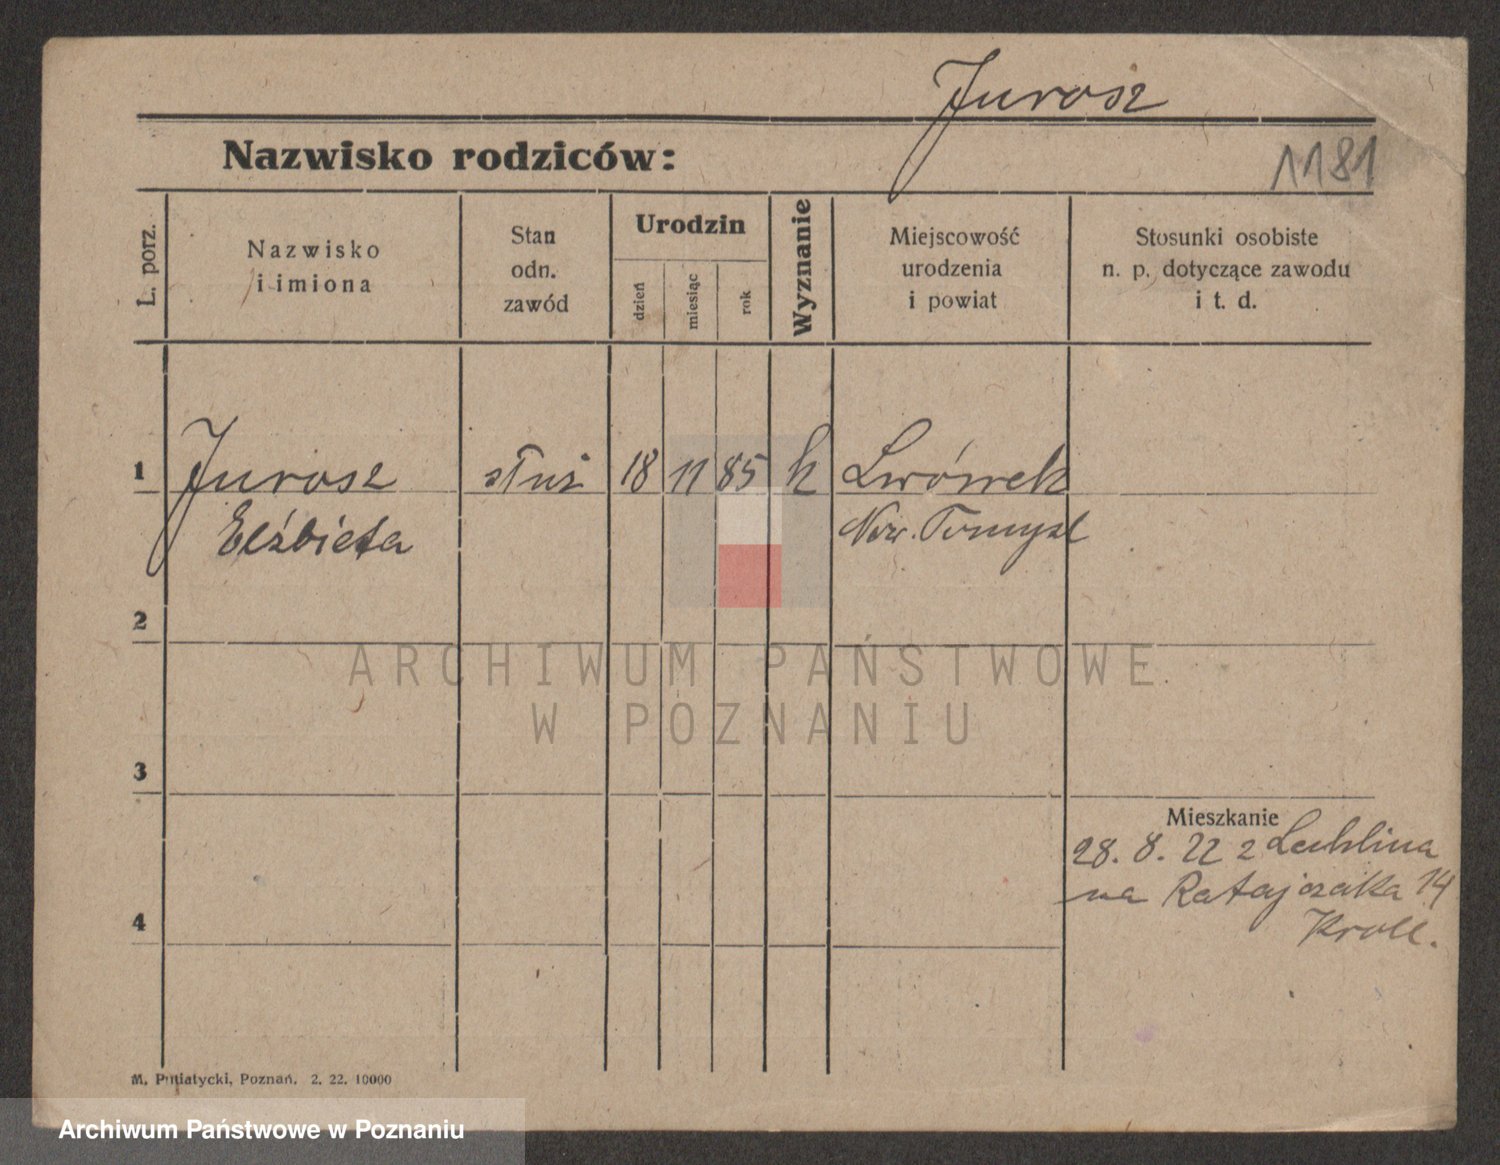 Jurosz
Nazwisko rodziców:
1181
L. porz.
Nazwisko
i imiona
Stan
odn.
zawód
Urodzin
dzień
miesiąc
rok
Wyznanie
Miejscowość
urodzenia
i powiat
Stosunki osobiste
n. p. dotyczące zawodu
i t. d.
1 Jurosz służ 18 11 85 k Lwówek
Elżbieta Now. Tomyśl
2
ARCHIWUM PAŃSTWOWE
W POZNANIU
3
Mieszkanie
28. 8. 22 z Lublina
na Ratajczaka 14
4
Kroll.
M. Putiatycki, Poznań. 2. 22. 10000
Archiwum Państwowe w Poznaniu